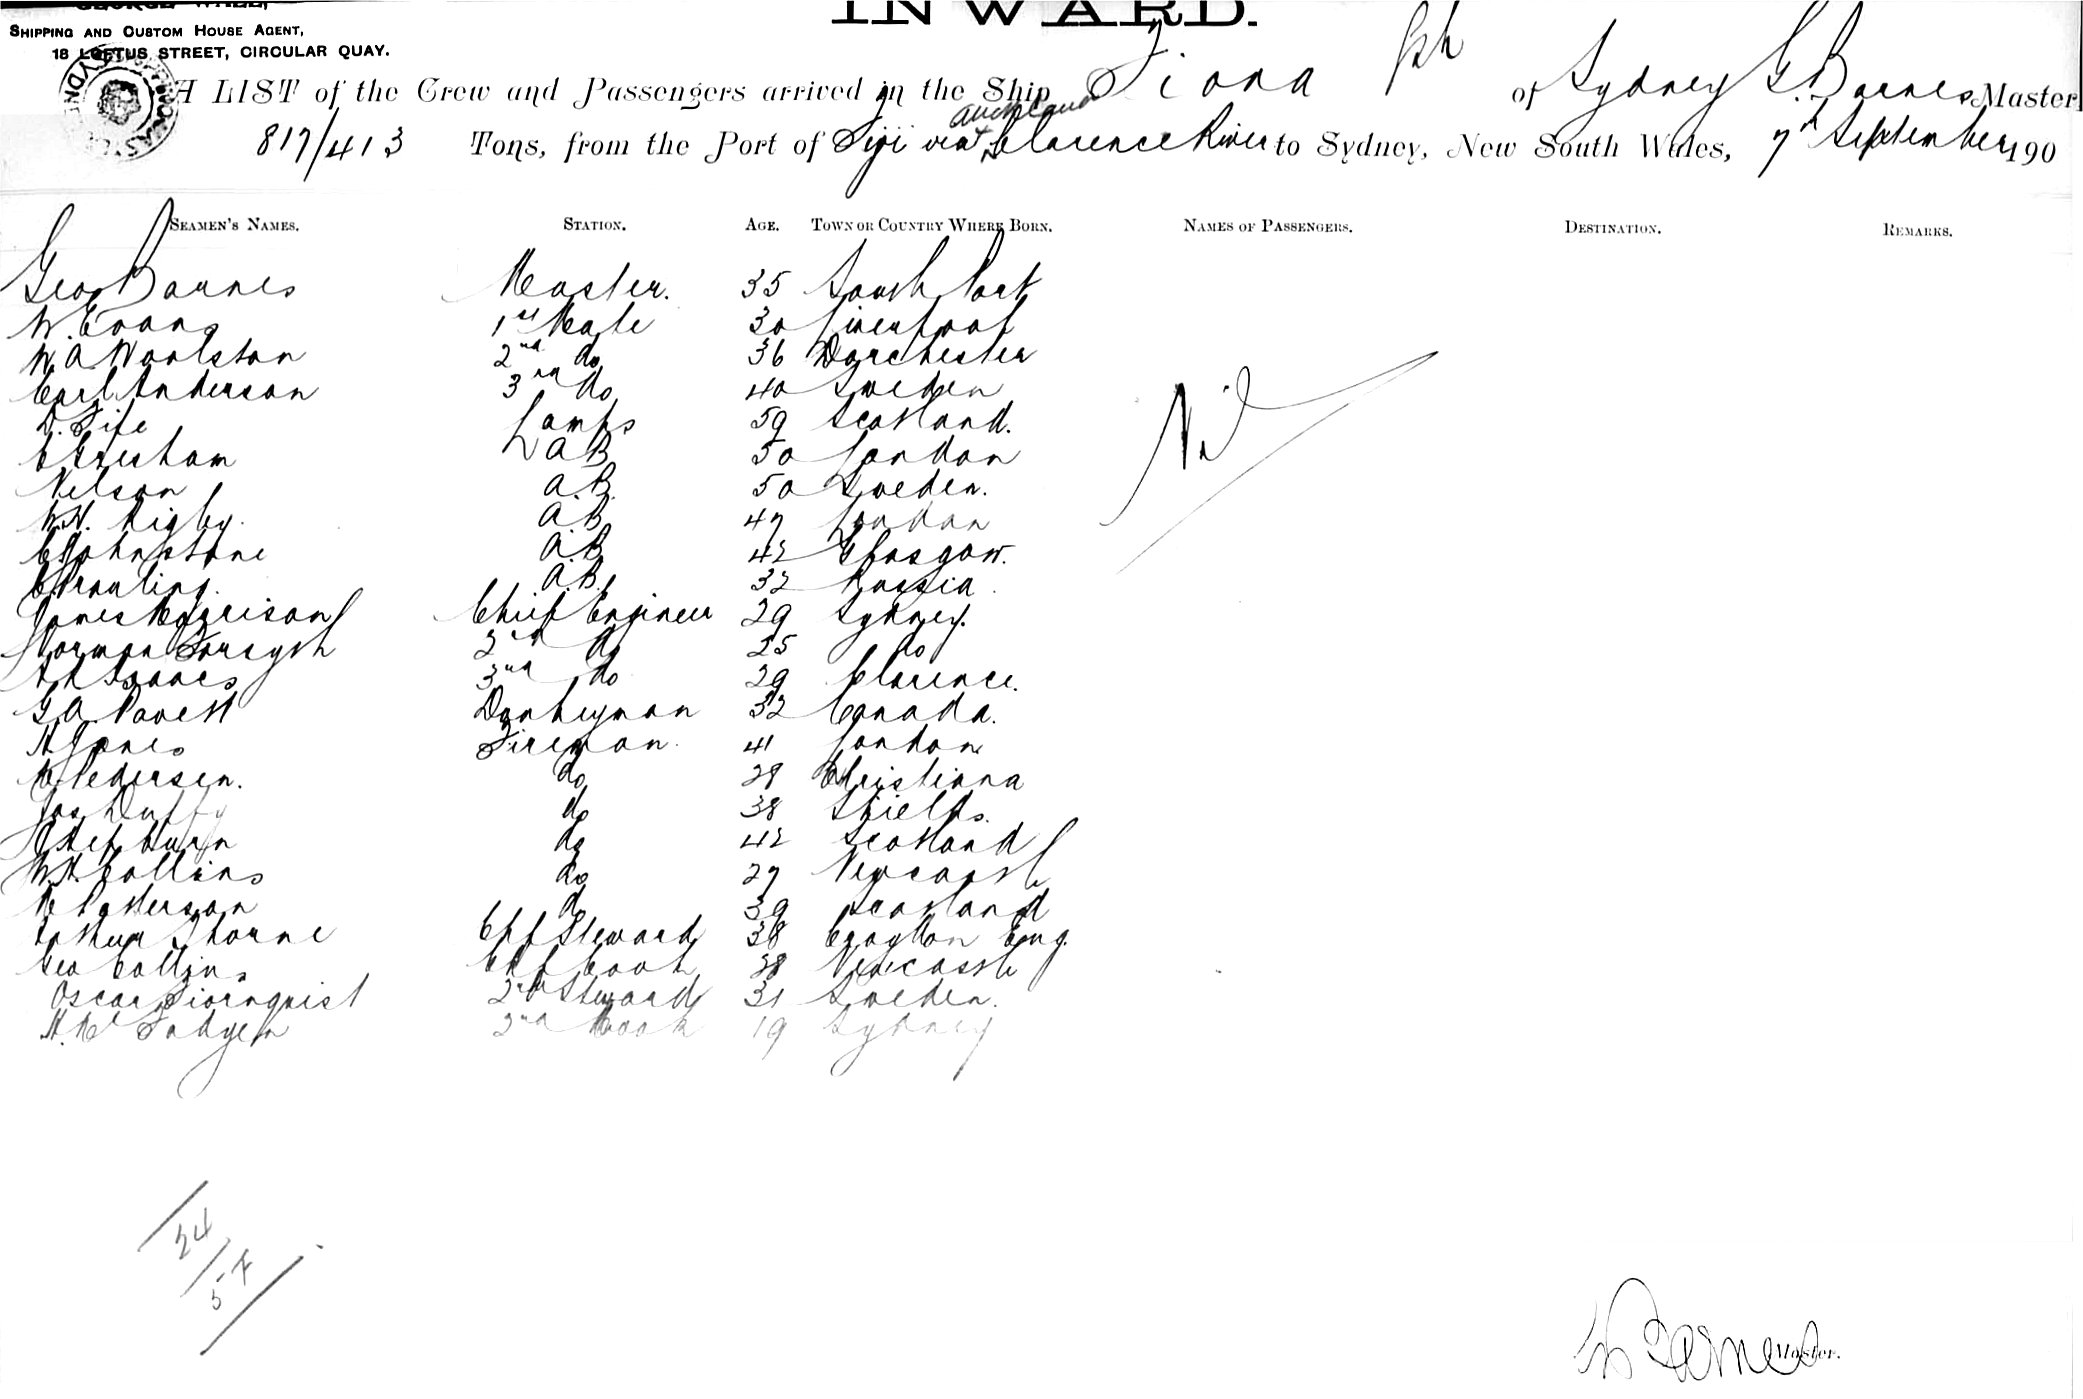 INWARD.
SHIPPING AND CUSTOM HOUSE AGENT,
18 LOFTUS STREET, CIRCULAR QUAY.
A LIST of the Crew and Passengers arrived in the Ship Fiona of Sydney G. Barnes Master
Auckland
817/413 Tons, from the Port of Fiji via & Clarence River to Sydney, New South Wales, 7th September 190
SEAMEN'S NAMES. STATION. AGE. TOWN OR COUNTRY WHERE BORN. NAMES OF PASSENGERS. DESTINATION. REMARKS.
Geo Barnes Master. 35 South Port
W. Evans 1st Mate 30 Liverpool
W A Woolston 2nd do 36 Dorchester
Carl Anderson 3rd do 40 Sweden
D. Fife Lamps 59 Scotland.
AB 50 London
Nelson A.B. 50 Sweden.
Nil
W.H. Rigby. A.B 47 London
C Johnstone A.B 42 Glasgow.
A.B. 32 Russia.
James Morrison Chief Engineer 29 Sydney.
Norman Forsyth 2nd do 25 do
Isaacs 3rd do 29 Clarence.
G A Donkeyman 32 Canada.
H Jones Fireman. 41 London
Pedersen. do 28 Christiana
Jas Duffy do 38 Shields.
Hepburn do 42 Scotland
W.H. Collins do 27 Newcastle
Patterson do 39 Scotland
Arthur Thorne Chf Steward 38 Croydon Eng.
Geo Collins Chf Cook 38 Newcastle
Oscar Fiornquist 2nd Steward 31 Sweden.
2nd Cook 19 Sydney
24
G Barnes Master.